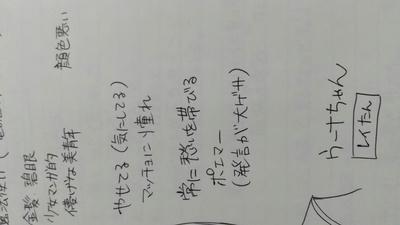 魔法使い
金髪 碧眼
少女マンガ的
儚げな美青年 顔色悪い
やせてる(気にしてる)
マッチョに憧れ
常に愁いを帯びる
ポエマー
(発言が大ゲサ)
ちゃん
レイたん